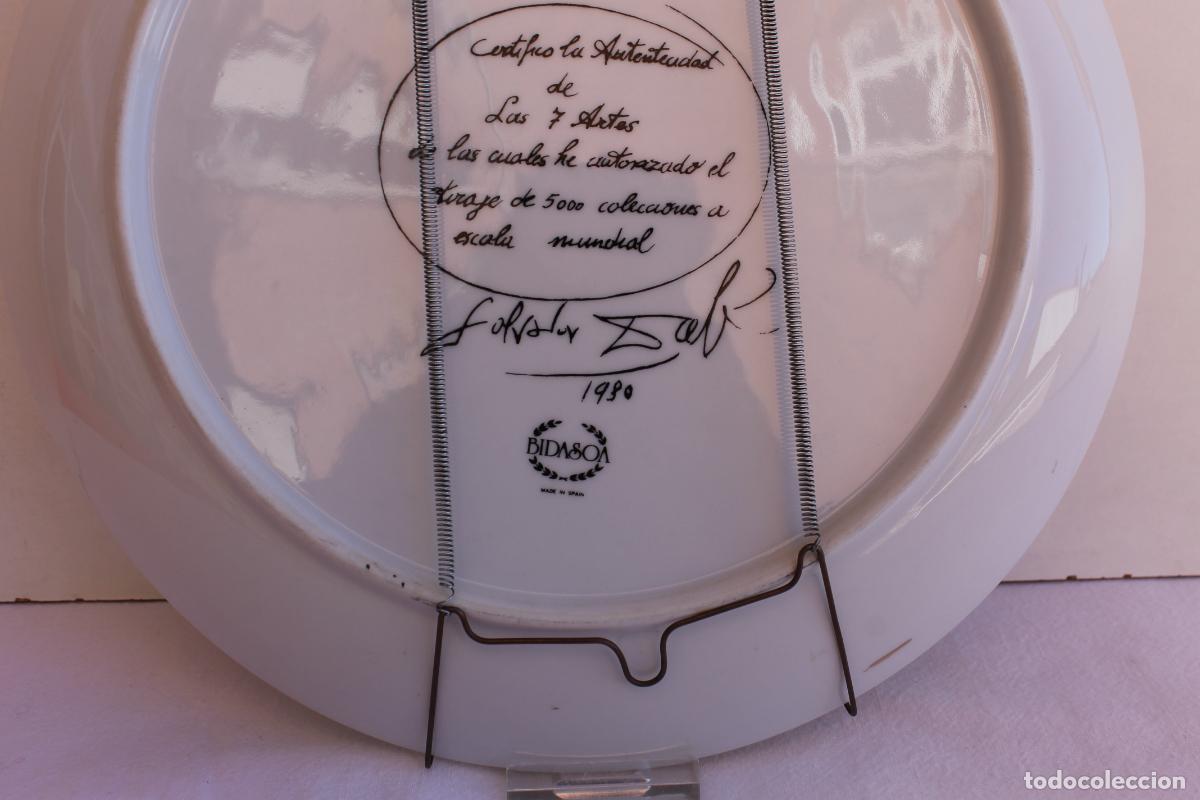 Certifico la Autenticidad
de
Las 7 Artes
de las cuales he autorizado el
tiraje de 5000 colecciones a
escala mundial
Salvador Dalí
1980
BIDASOA
MADE IN SPAIN
todocoleccion